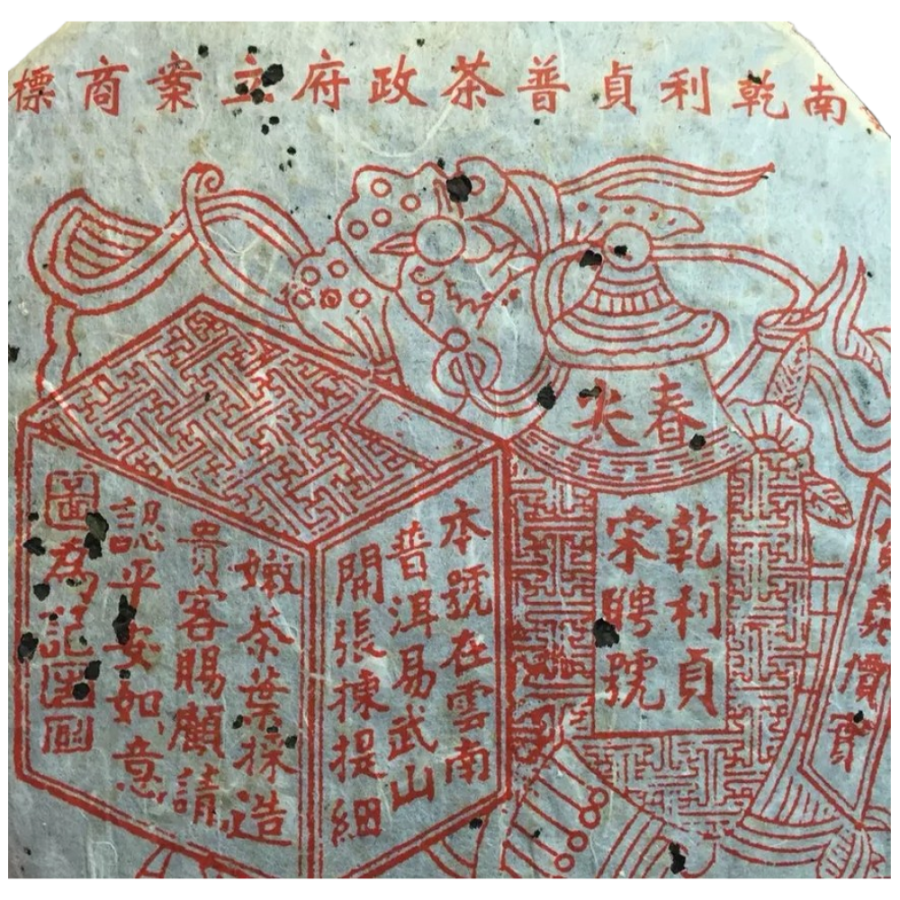 南乾利貞普茶政府立案商標
春尖
乾利貞
宋聘號
價實
本號在雲南
普洱易武山
開張揀提細
嫩茶葉採造
貴客賜顧請
認平安如意
圖為記